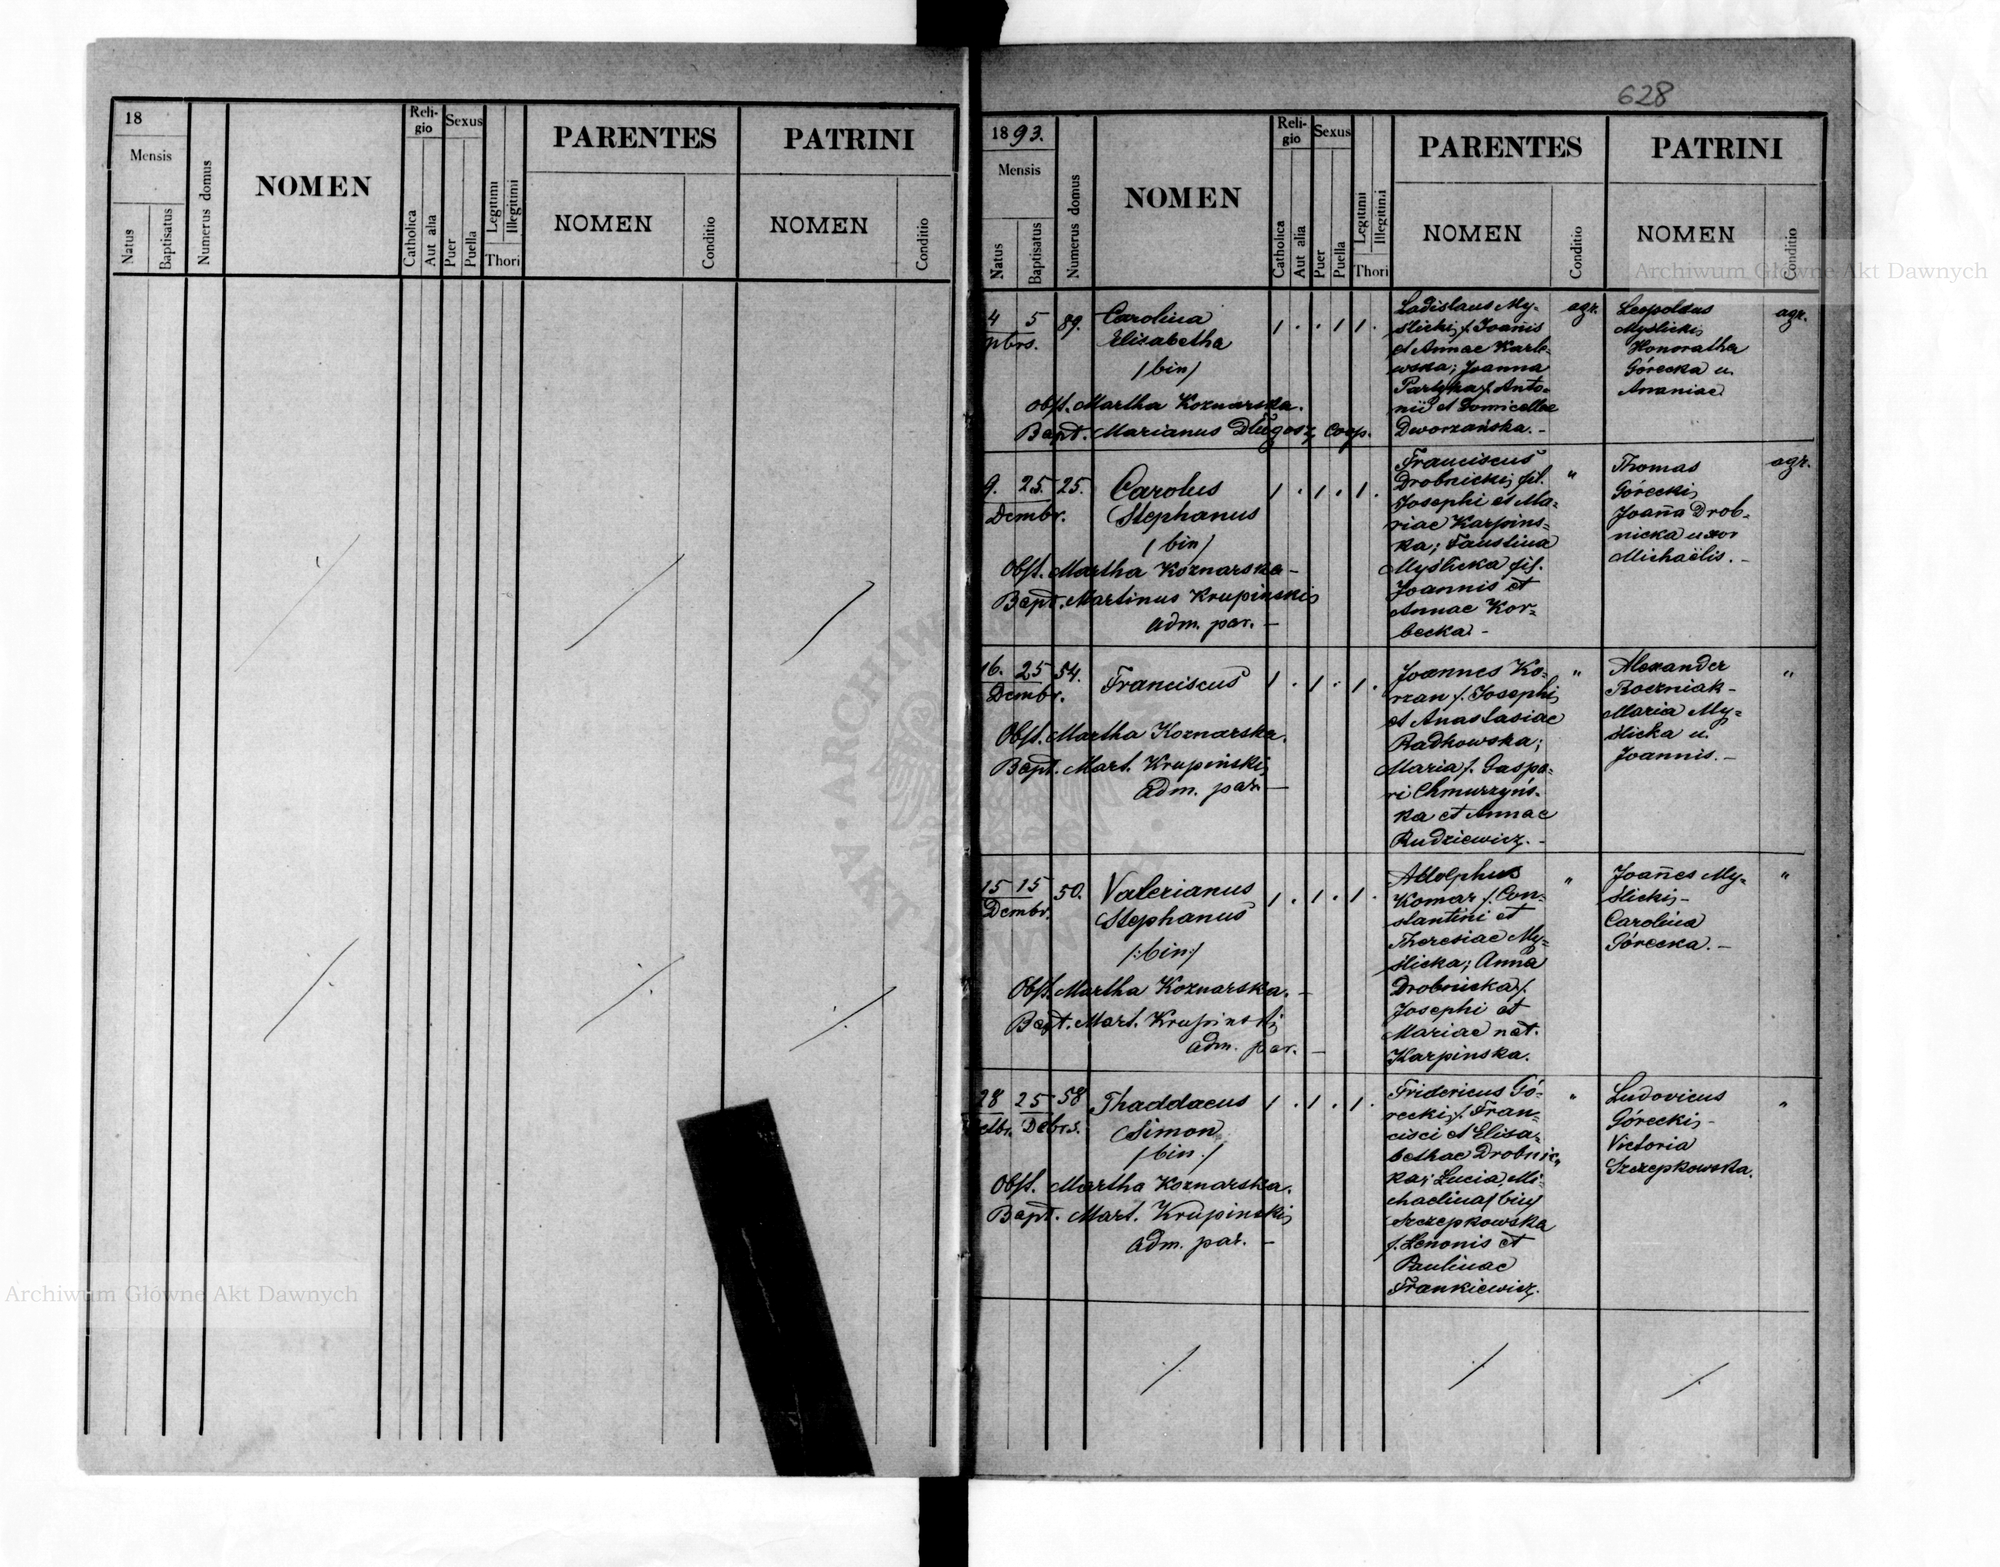 18
Mensis
Natus
Baptisatus
Numerus domus
NOMEN
Reli-
gio
Catholica
Aut alia
Sexus
Puer
Puella
Legitimi
Illegitimi
Thori
PARENTES
NOMEN
Conditio
PATRINI
NOMEN
Conditio
628
1893.
Mensis
Natus
Baptisatus
Numerus domus
NOMEN
Reli-
gio
Catholica
Aut alia
Sexus
Puer
Puella
Legitimi
Illegitimi
Thori
PARENTES
NOMEN
Conditio
PATRINI
NOMEN
Conditio
4 5 89.
Carolina
Elisabetha
/bin/
Obst. Martha Koznarska.
Bapt. Marianus Długosz, Coop.
1 . . 1 1 .
Ladislaus My-
ślicki, f. Joannis
et Annae
wska; Joanna
Partyka f. Anto-
nii et Domicellae
Dworzańska. -
agr.
Leopoldus
Myślicki,
Honoratha
Górecka u.
Ananiae
agr.
9. 25. 25.
Dcmbr.
Carolus
Stephanus
/bin/
Obst. Martha Koznarska -
Bapt. Martinus Krupiński,
adm. par. -
1 . 1 . 1 .
Franciscus
Drobnicki, fil.
Josephi et Ma-
riae Karpins-
ka; Faustina
Myślicka fil.
Joannis et
Annae Kor-
becka -
"
Thomas
Górecki,
Joan̄a Drob-
nicka uxor
Michaëlis. -
agr.
16. 25 54.
Dcmbr.
Franciscus
Obst. Martha Koznarska.
Bapt. Mart. Krupiński,
adm. par. -
1 . 1 . 1 .
Joannes Ko-
rzan f. Josephi,
et Anastasiae
Radkowska;
Maria f. Gaspa-
ri Chmurzyńs-
ka et Annae
Rudziewicz. -
"
Alexander
Roczniak -
Maria My-
ślicka u.
Joannis. -
"
15 15 50.
Dcmbr.
Valerianus
Stephanus
/:bin:/
Obst. Martha Koznarska. -
Bapt. Mart. Krupiński,
adm. par. -
1 . 1 . 1 .
Adolphus
Komar f. Con-
stantini et
Theresiae My-
ślicka; Anna
Drobnicka f.
Josephi et
Mariae nat.
Karpinska.
"
Joan̄es My-
ślicki, -
Carolina
Górecka. -
"
28 25 58
Dcbrs.
Thaddaeus
Simon
/bin./
Obst. Martha Koznarska.
Bapt. Mart. Krupiński,
adm. par. -
1 . 1 . 1 .
Fridericus Gó-
recki, f. Fran-
cisci et Elisa-
bethae Drobnic-
ka; Lucia, Mi-
chaelina /bin/
Szczepkowska
f. Zenonis et
Paulinae
Frankiewicz.
"
Ludovicus
Górecki, -
Victoria
Szczepkowska.
"
Archiwum Główne Akt Dawnych
Archiwum Główne Akt Dawnych